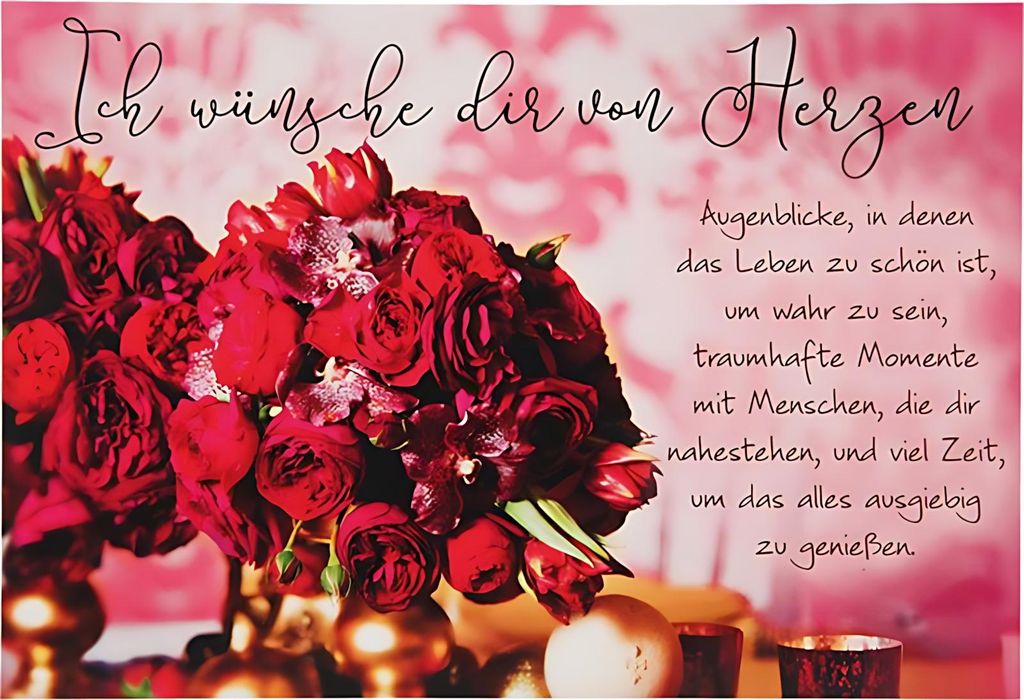 Ich wünsche dir von Herzen
Augenblicke, in denen
das Leben zu schön ist,
um wahr zu sein,
traumhafte Momente
mit Menschen, die dir
nahestehen, und viel Zeit,
um das alles ausgiebig
zu genießen.